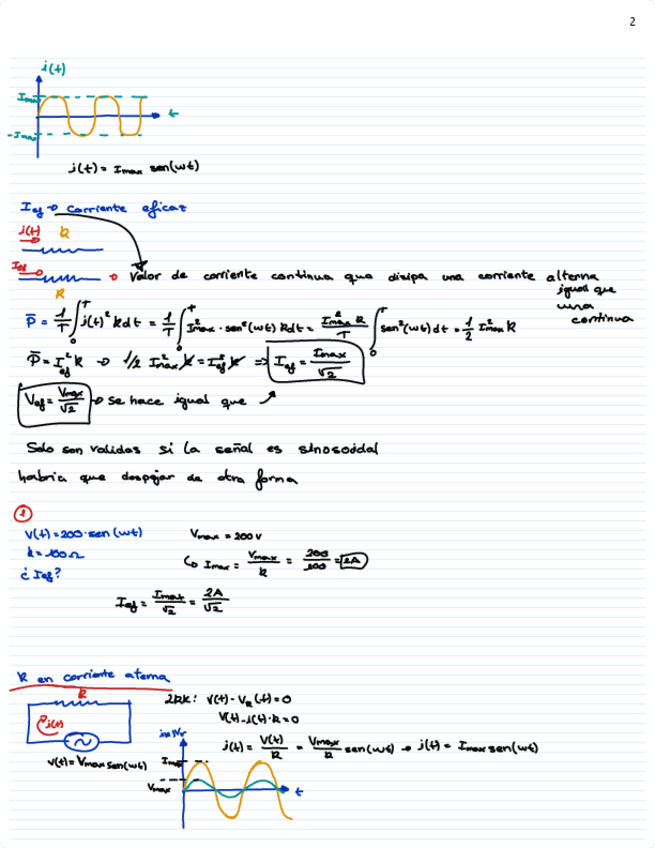 2
i(t)
Imax
t
-Imax
i(t) = Imax sen(wt)
Ief → corriente eficaz
i(t) R
Ief → Valor de corriente continua que disipa una corriente alterna
R igual que
una
continua
P̄ = 1/T ∫₀ᵀ i(t)² R dt = 1/T ∫₀ᵀ I²max · sen²(wt) R dt = I²max R / T ∫₀ᵀ sen²(wt) dt = 1/2 I²max R
P̄ = I²ef R → 1/2 I²max R = I²ef R ⇒ Ief = Imax/√2
Vef = Vmax/√2 → se hace igual que
Solo son validas si la señal es sinosoidal
habria que despejar de otra forma
1
V(t) = 200·sen(wt) Vmax = 200 V
R = 100 Ω Imax = Vmax/R = 200/100 = 2A
¿ Ief?
Ief = Imax/√2 = 2A/√2
R en corriente alterna
R
i(t)
V(t) = Vmax sen(wt)
2LK: V(t) - VR(t) = 0
V(t) - i(t)·R = 0
i(t) = V(t)/R = Vmax/R sen(wt) → i(t) = Imax sen(wt)
Imax
Vmax
t